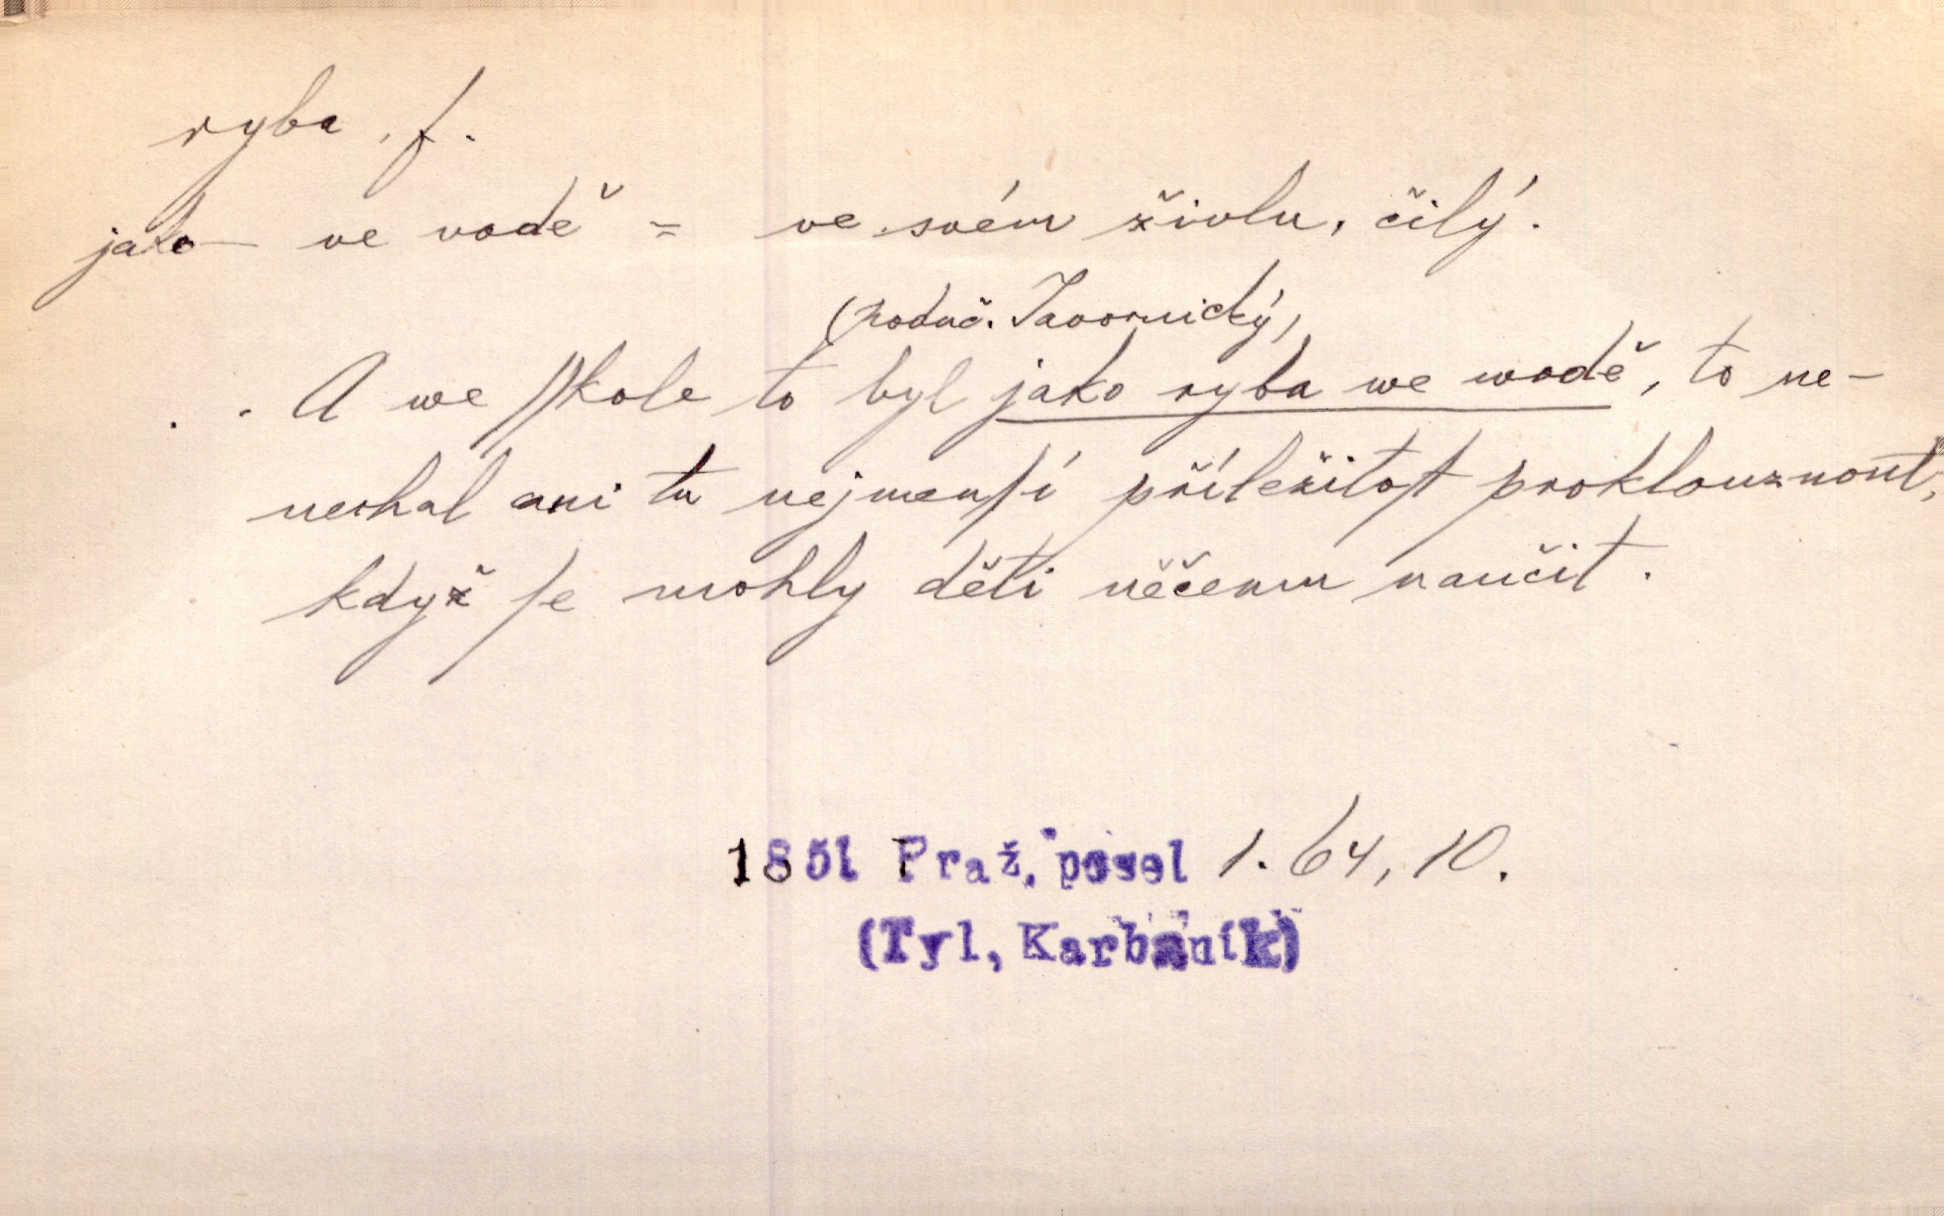 ryba, f.
jako — ve vodě = ve svém živlu, čilý.
(poduč. Javornický)
A we ſſkole to byl jako ryba we wodě, to ne-
nechal ani tu nejmenſí příležitoſt proklouznout,
když ſe mohly děti něčemu naučit.
1851 Praž. posel 1. 64, 10.
(Tyl, Karbaník)